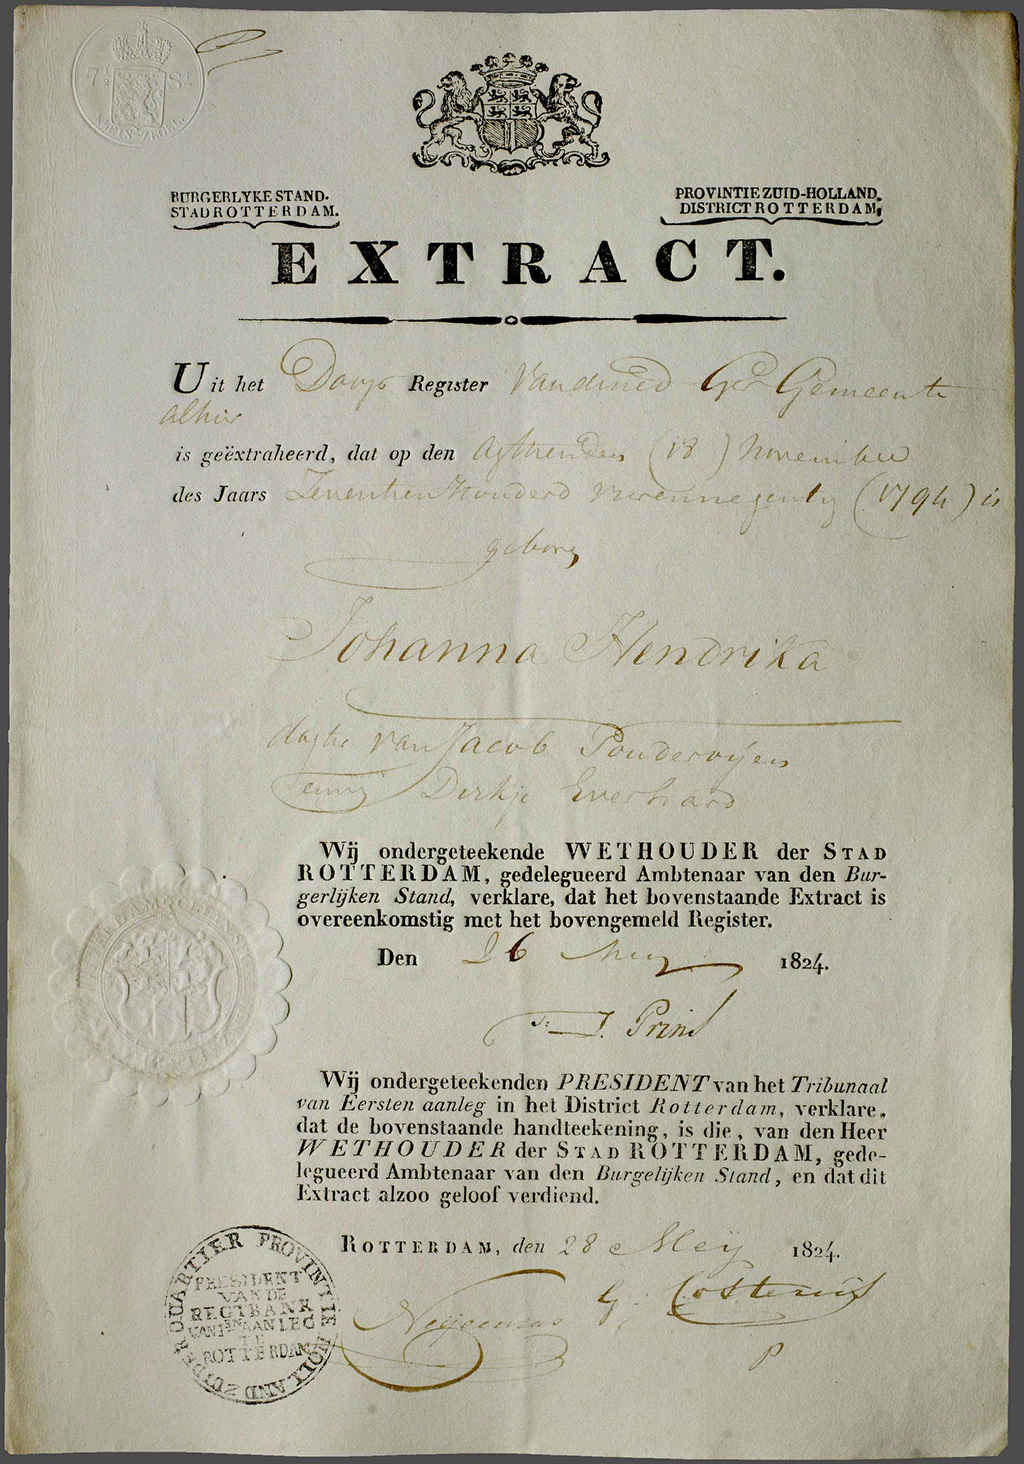 BURGERLYKE STAND.
STAD ROTTERDAM.
PROVINTIE ZUID-HOLLAND,
DISTRICT ROTTERDAM,
EXTRACT.
Uit het Doop Register van de Ned Ger Gemeente
alhier
is geëxtraheerd, dat op den Agthienden (18) November
des Jaars Zeventien Honderd vierennegentig (1794) is
geboren
Johanna Hendrika
dogter van Jacob Pouderoijen
en Dirkje Everhard
Wij ondergeteekende WETHOUDER der STAD
ROTTERDAM, gedelegueerd Ambtenaar van den Bur-
gerlijken Stand, verklare, dat het bovenstaande Extract is
overeenkomstig met het bovengemeld Register.
Den 26 Mey 1824.
J. Prins
Wij ondergeteekenden PRESIDENT van het Tribunaal
van Eersten aanleg in het District Rotterdam, verklare,
dat de bovenstaande handteekening, is die, van den Heer
WETHOUDER der STAD ROTTERDAM, gede-
legueerd Ambtenaar van den Burgelijken Stand, en dat dit
Extract alzoo geloof verdiend.
ROTTERDAM, den 28 Meij 1824.
G.
P
KWARTIER PROVINTIE HOLLAND ZUIDER
PRESIDENT
VAN DE
REGTBANK
VAN 1EN AANLEG
TE
ROTTERDAM